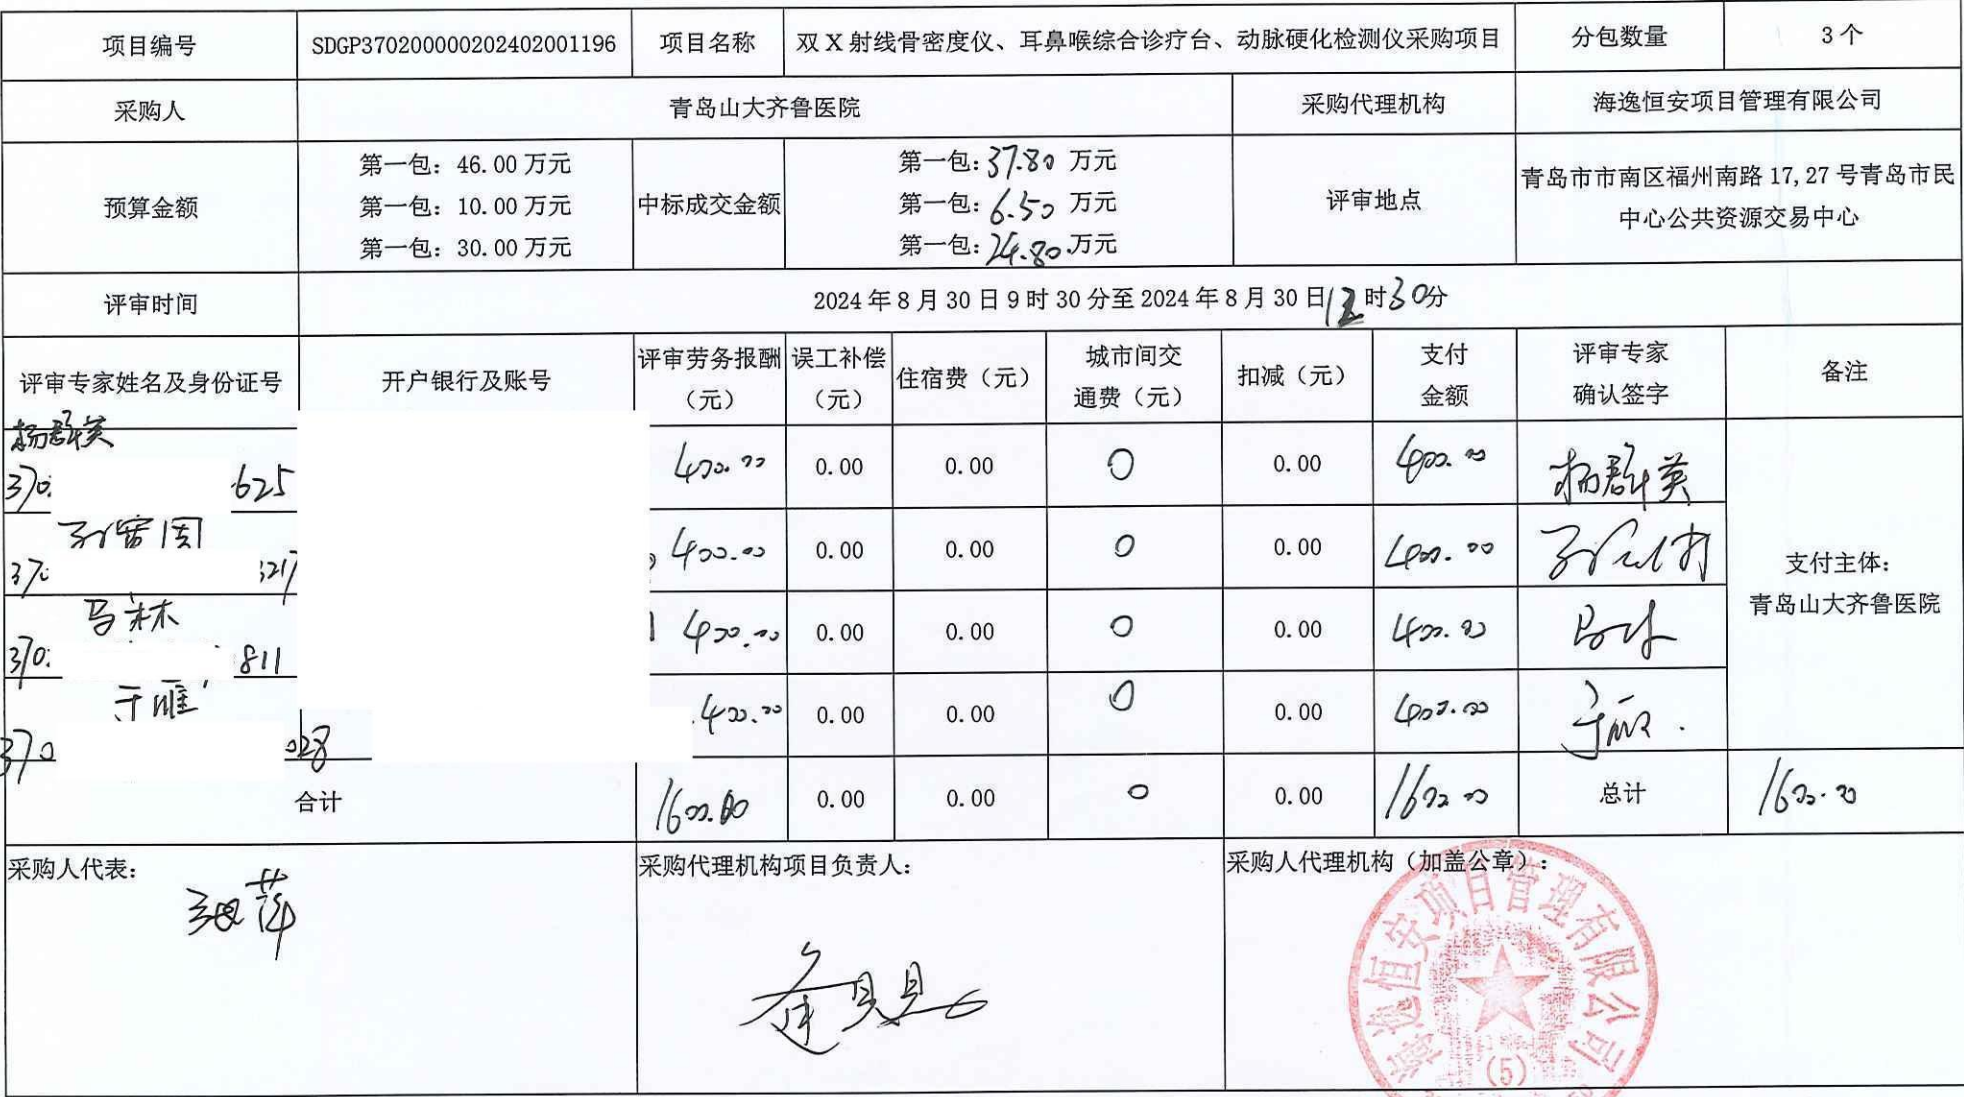 项目编号 SDGP370200000202402001196 项目名称 双 X 射线骨密度仪、耳鼻喉综合诊疗台、动脉硬化检测仪采购项目 分包数量 3 个
采购人 青岛山大齐鲁医院 采购代理机构 海逸恒安项目管理有限公司
预算金额
第一包：46.00 万元
第一包：10.00 万元
第一包：30.00 万元
中标成交金额
第一包：37.80 万元
第一包：6.50 万元
第一包：24.80 万元
评审地点
青岛市市南区福州南路 17,27 号青岛市民
中心公共资源交易中心
评审时间 2024 年 8 月 30 日 9 时 30 分至 2024 年 8 月 30 日 12 时 30分
评审专家姓名及身份证号 开户银行及账号
评审劳务报酬
（元）
误工补偿
（元）
住宿费（元）
城市间交
通费（元）
扣减（元）
支付
金额
评审专家
确认签字
备注
杨群英
370. 625
400.00 0.00 0.00 0 0.00 400.00 杨群英
370 3217
400.00 0.00 0.00 0 0.00 400.00
马林
370. 811
400.00 0.00 0.00 0 0.00 400.00 马林
于雁
370 028
400.00 0.00 0.00 0 0.00 400.00
支付主体：
青岛山大齐鲁医院
合计 1600.00 0.00 0.00 0 0.00 1600.00 总计 1600.00
采购人代表：
采购代理机构项目负责人：
采购人代理机构（加盖公章）：
海逸恒安项目管理有限公司
(5)